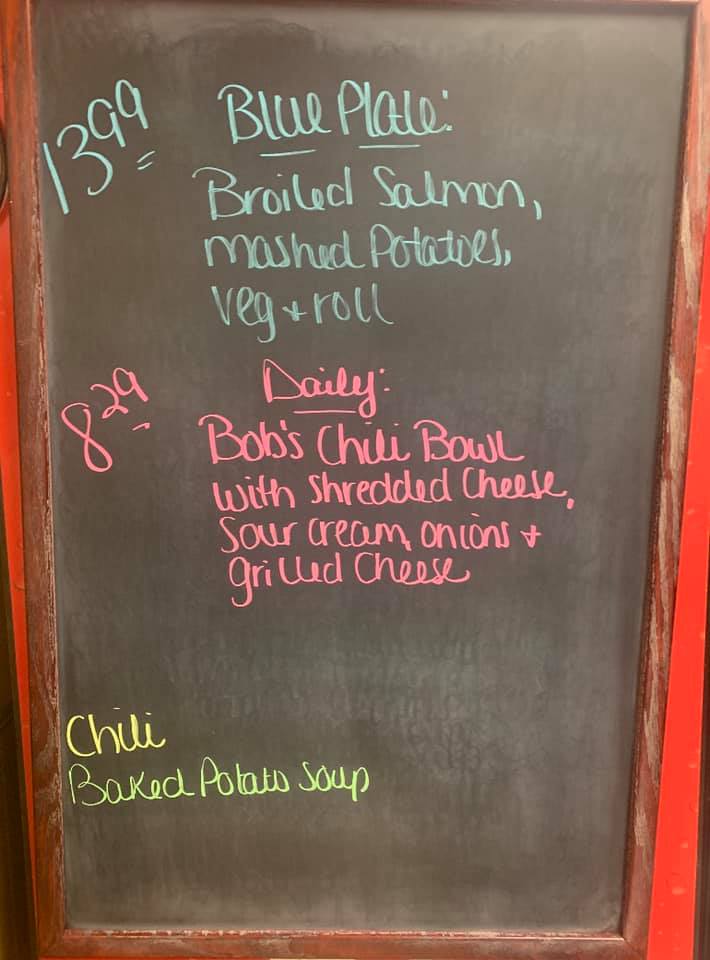 13.99 Blue Plate:
Broiled Salmon,
mashed Potatoes,
veg + roll
8.29 Daily:
Bob's Chili Bowl
with shredded Cheese,
Sour cream, onions +
grilled Cheese
Chili
Baked Potato Soup